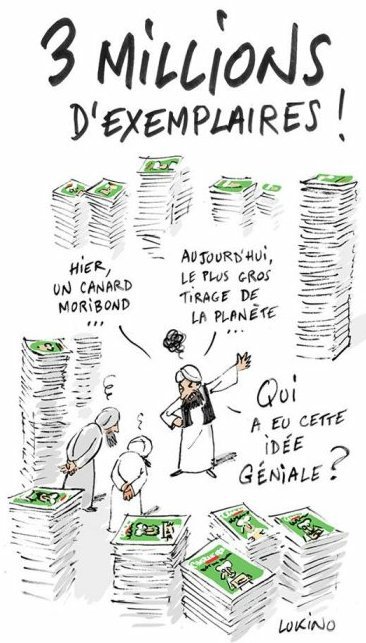 3 MILLIONS
D'EXEMPLAIRES !
HIER,
UN CANARD
MORIBOND
...
AUJOURD'HUI,
LE PLUS GROS
TIRAGE DE
LA PLANÈTE
...
QUI
A EU CETTE
IDÉE
GÉNIALE ?
LUKINO